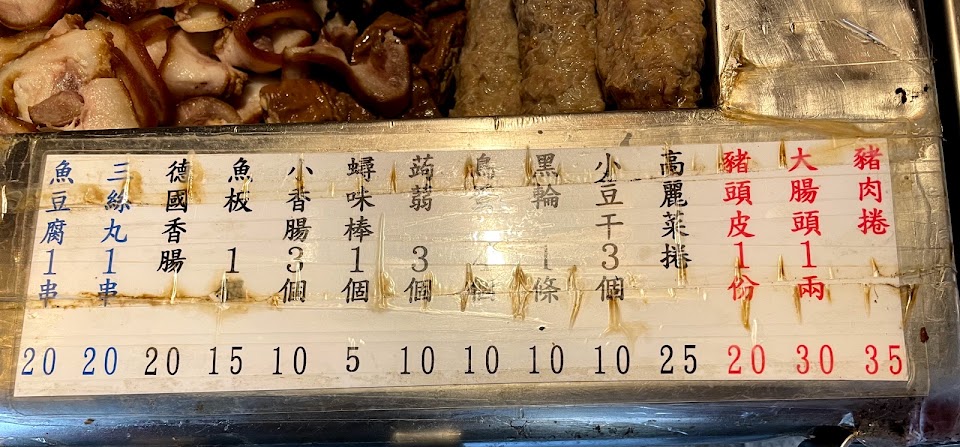 豬肉捲 35
大腸頭1兩 30
豬頭皮1份 20
高麗菜捲 25
小豆干3個 10
黑輪1條 10
鳥蛋 個 10
蒟蒻3個 10
蟳味棒1個 5
八香腸3個 10
魚板1 15
德國香腸 20
三絲丸1串 20
魚豆腐1串 20